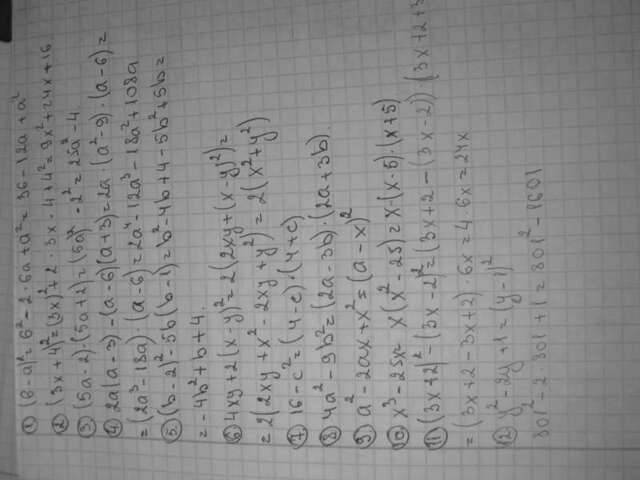 ① (6-a)²= 6²-2·6a+a²= 36-12a+a²
② (3x+4)²=(3x)²+2·3x·4+4²=9x²+24x+16
③ (5a-2)·(5a+2)=(5a)²-2²=25a²-4
④ 2a(a-3)-(a-6)(a+3)=2a·(a²-9)·(a-6)=
=(2a³-18a)·(a-6)=2a⁴-12a³-18a²+108a
⑤ (b-2)²-5b(b-1)=b²-4b+4-5b²+5b=
=-4b²+b+4.
⑥ 4xy+2(x-y)²=2(2xy+(x-y)²)=
=2(2xy+x²-2xy+y²)=2(x²+y²)
⑦ 16-c²=(4-c)·(4+c)
⑧ 4a²-9b²=(2a-3b)·(2a+3b).
⑨ a²-2ax+x²=(a-x)²
⑩ x³-25x= x(x²-25)=x·(x-5)·(x+5)
⑪ (3x+2)²-(3x-2)²=(3x+2-(3x-2))·(3x+2+3
=(3x+2-3x+2)·6x=4·6x=24x
⑫ y²-2y+1=(y-1)²
801²-2·801+1=801²-1601